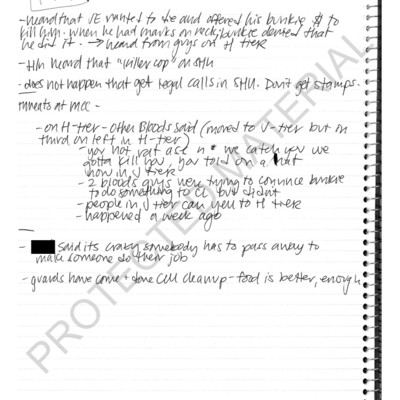 - heard that JE wanted to die and offered his bunkie $ to
kill him. when he had marks on neck, bunkie denied that
he did it. → heard from guys on H tier
- Him heard that "killer cop" on 9th
- does not happen that get legal calls in SHU. Don't get stamps.
Threats at MCC -
- on H-tier - other Bloods said (moved to J-tier but on
third on left in H-tier)
- you not rat ase n we catch you we
gotta kill you, you told on a
now in J tier
- 2 bloods guys were trying to convince bunkie
to do something to CC but didnt
- people in J tier can yell to H tier
- happened a week ago
- said its crazy somebody has to pass away to
make someone do their job
- guards have come + done cell cleanup - food is better, enough
PROTECTED MATERIAL